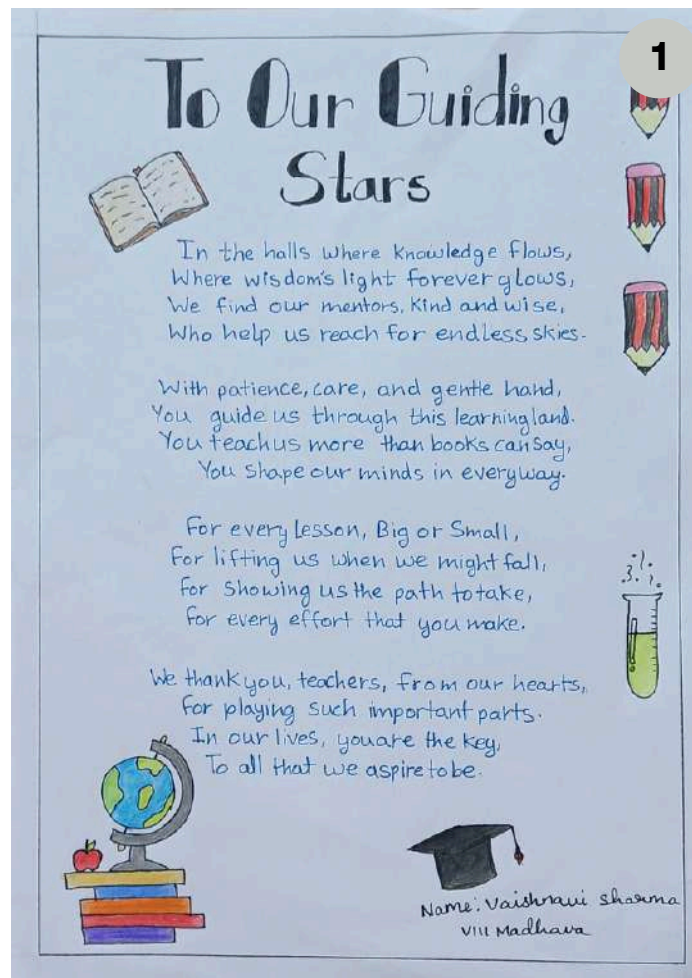 1
To Our Guiding
Stars
In the halls where knowledge flows,
Where wisdom's light forever glows,
We find our mentors, kind and wise,
Who help us reach for endless skies.
With patience, care, and gentle hand,
You guide us through this learning land.
You teach us more than books can say,
You shape our minds in everyway.
For every Lesson, Big or Small,
For lifting us when we might fall,
For showing us the path to take,
For every effort that you make.
We thank you, teachers, from our hearts,
For playing such important parts.
In our lives, you are the key,
To all that we aspire to be.
Name: Vaishnavi Sharma
VIII Madhava